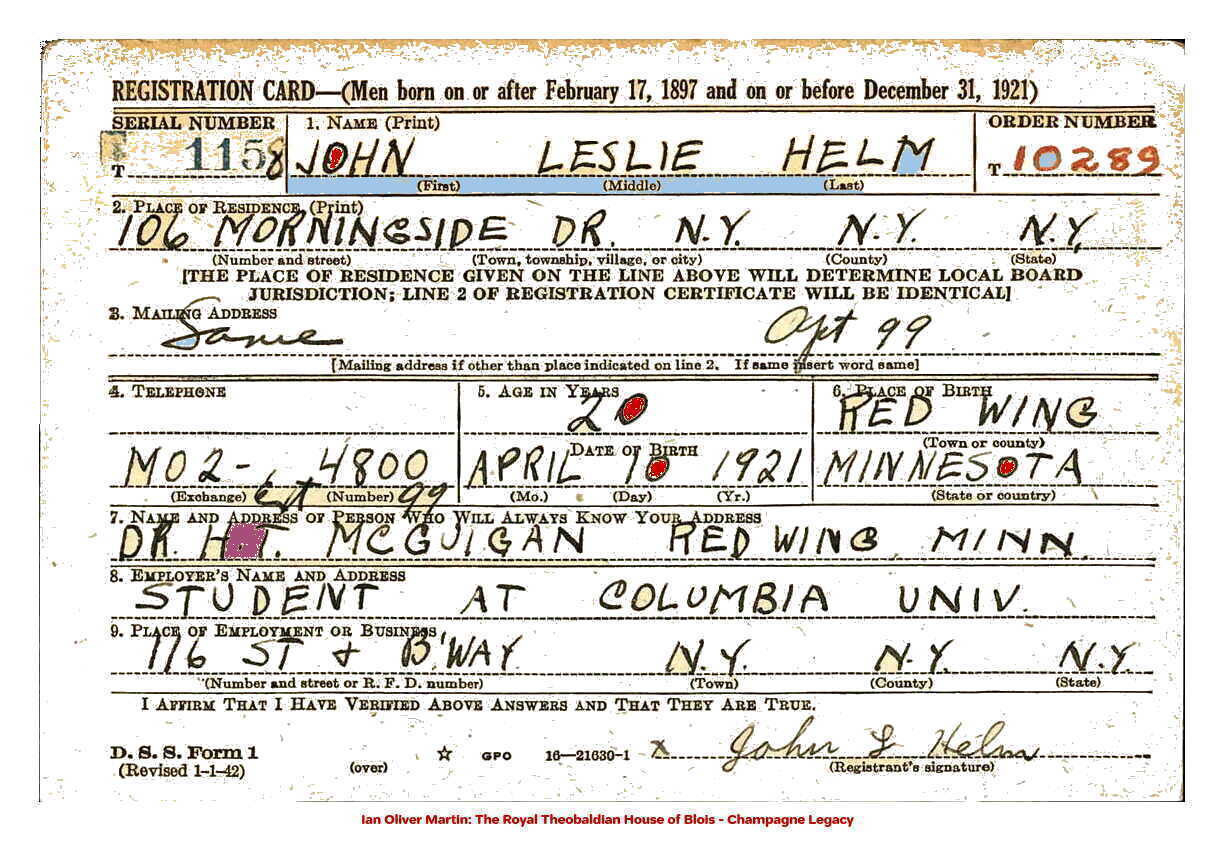 REGISTRATION CARD—(Men born on or after February 17, 1897 and on or before December 31, 1921)
SERIAL NUMBER 1. NAME (Print) ORDER NUMBER
T 1158 JOHN LESLIE HELM T 10289
(First) (Middle) (Last)
2. PLACE OF RESIDENCE (Print)
106 MORNINGSIDE DR. N.Y. N.Y. N.Y.
(Number and street) (Town, township, village, or city) (County) (State)
[THE PLACE OF RESIDENCE GIVEN ON THE LINE ABOVE WILL DETERMINE LOCAL BOARD
JURISDICTION; LINE 2 OF REGISTRATION CERTIFICATE WILL BE IDENTICAL]
3. MAILING ADDRESS
Same Apt 99
[Mailing address if other than place indicated on line 2. If same insert word same]
4. TELEPHONE 5. AGE IN YEARS 6. PLACE OF BIRTH
20 RED WING
DATE OF BIRTH (Town or county)
MO2- 4800 APRIL 10 1921 MINNESOTA
(Exchange) (Number) (Mo.) (Day) (Yr.) (State or country)
ext 99
7. NAME AND ADDRESS OF PERSON WHO WILL ALWAYS KNOW YOUR ADDRESS
DR. H.T. MCGUIGAN RED WING MINN.
8. EMPLOYER'S NAME AND ADDRESS
STUDENT AT COLUMBIA UNIV.
9. PLACE OF EMPLOYMENT OR BUSINESS
116 ST + B'WAY N.Y. N.Y. N.Y.
(Number and street or R. F. D. number) (Town) (County) (State)
I AFFIRM THAT I HAVE VERIFIED ABOVE ANSWERS AND THAT THEY ARE TRUE.
D. S. S. Form 1 ☆ GPO 16—21630-1 X John L Helm
(Revised 1-1-42) (over) (Registrant's signature)
Ian Oliver Martin: The Royal Theobaldian House of Blois - Champagne Legacy